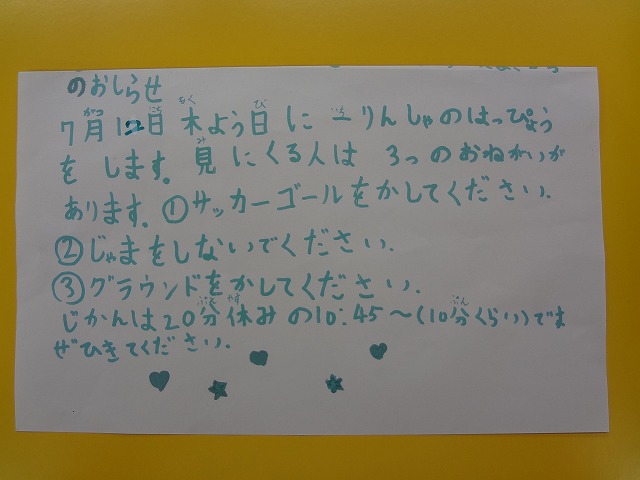 のおしらせ
7月12日 木よう日に 一りんしゃのはっぴょう
をします。見にくる人は 3つのおねがいが
あります。①サッカーゴールをかしてください。
②じゃまをしないでください。
③グラウンドをかしてください。
じかんは20分休みの10:45〜(10分くらい)でま
ぜひきてください。